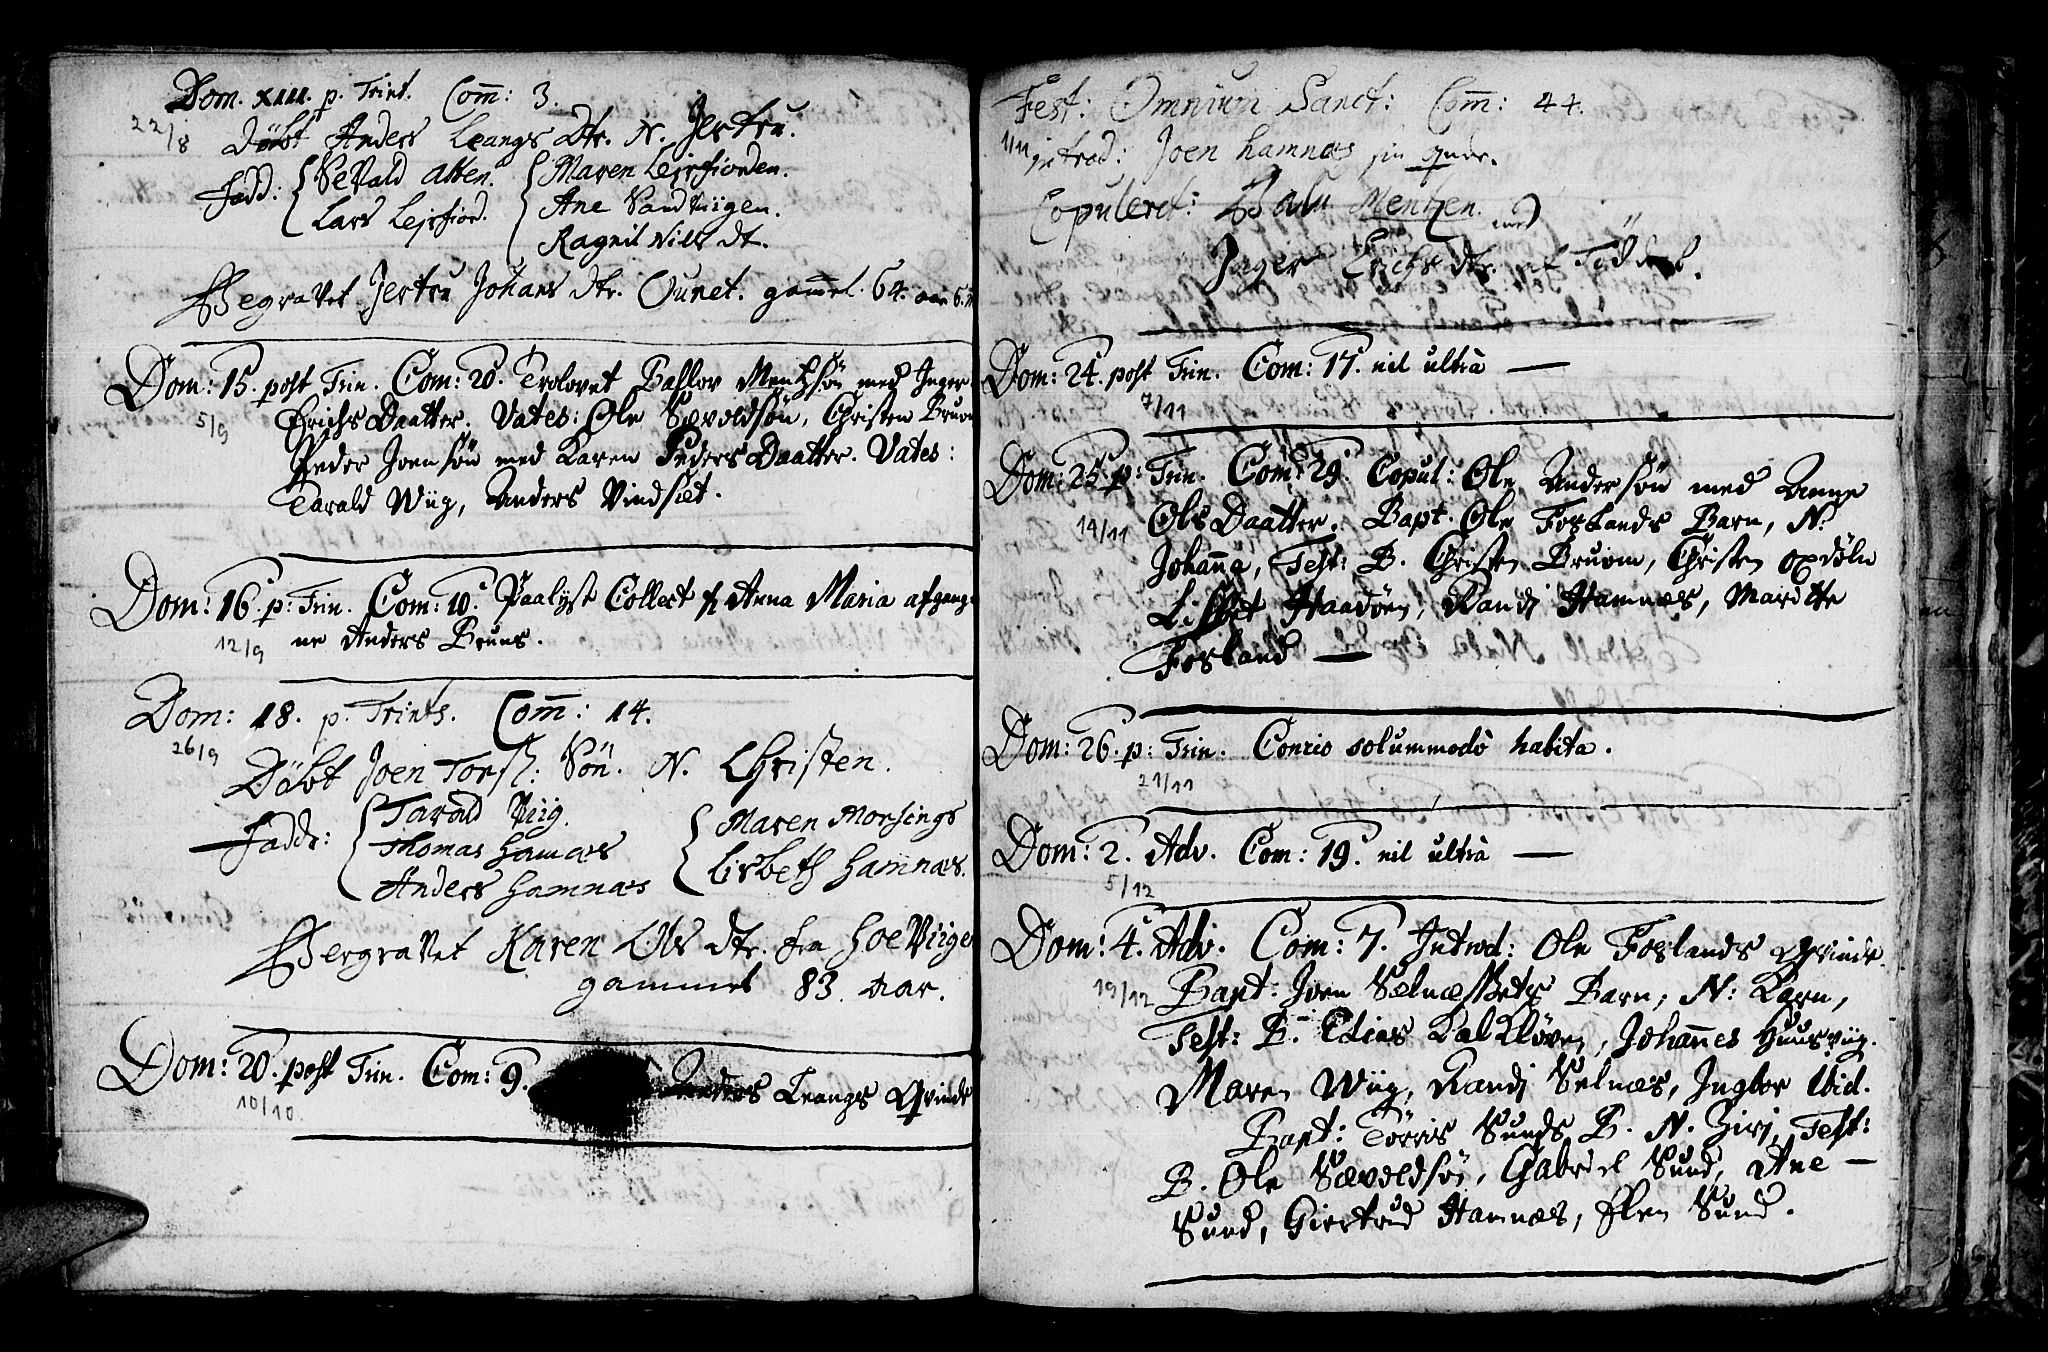 Dom. XIII. p. Trint. Com̄: 3.
22/8
Döbt Anders Leangs Dtr. N. Jertru.
Fadd: Sevald Atten. Maren Lejrfiorden.
Lars Lejrfiord. Ane Sandviigen.
Ragnil Nils dt.
Begravet Jertru Johans dtr. Ounet. gam̄el. 64. aar 6.
Dom: 15. post Trin. Com: 20. Trolovet Ballov Mentzsön med Inger
5/9
Erichs Daatter. Vates: Ole Sævoldsön, Christen Bruun
Peder Joensön med Karen Peders Daatter. Vates:
Tarald Wiig, Anders Vindsæt.
Dom: 16. p: Trin. Com: 10. Paalyst Collect f Anna Maria afgang-
12/9
ne Anders Bruns.
Dom: 18. p. Trints. Com̄: 14.
26/9
Döbt Joen Torst: Sön. N. Christen.
Fadde: Tarald Viig. Maren Morsings
Thomas Hamnæs Lisbeth Hamnæs.
Anders Hamnæs
Bergravet Karen Ols dtr. fra Hoeviigen
gammel 83. aar.
Dom: 20. post Trin. Com: 9. Anders Leangs Qvinde
10/10
Fest: Omnium Sanct: Com̄: 44.
1/11
jntrod: Joen Hamnæs sin qvde.
Copuleret: Balu Mentzen. med
Inger Erichs dtr. af
Dom: 24. post Trin. Com: 17. nil ultrà —
7/11
Dom: 25. p: Trin. Com: 29. Copul: Ole Andersön med Anne
14/11
Ols Daatter. Bapt. Ole Foslands Barn, N:
Johan̄a, Test: B. Christen Bruun, Christen Opdöln
Lisbet Haadöen, Randj Hamnæs, Maritte
Fosland —
Dom: 26. p: Trin. Concio solummodò habita.
21/11
Dom: 2. Adv. Com: 19. nil ultrà —
5/12
Dom: 4. Adv. Com: 7. Introd: Ole Foslands Qvinde.
19/12
Bapt: Joen Selnæs Barn, N: Karn,
Test: B. Elias Kalkloven, Johan̄es Huusviig.
Maren Wiig, Randj Selnæs, Ingbor ibid.
Bapt: Törris Sunds B. N. Girj, Test:
B. Ole Sævoldsön, Gabriel Sund, Ane —
Sund, Giertrud Hamnæs, Elen Sund.